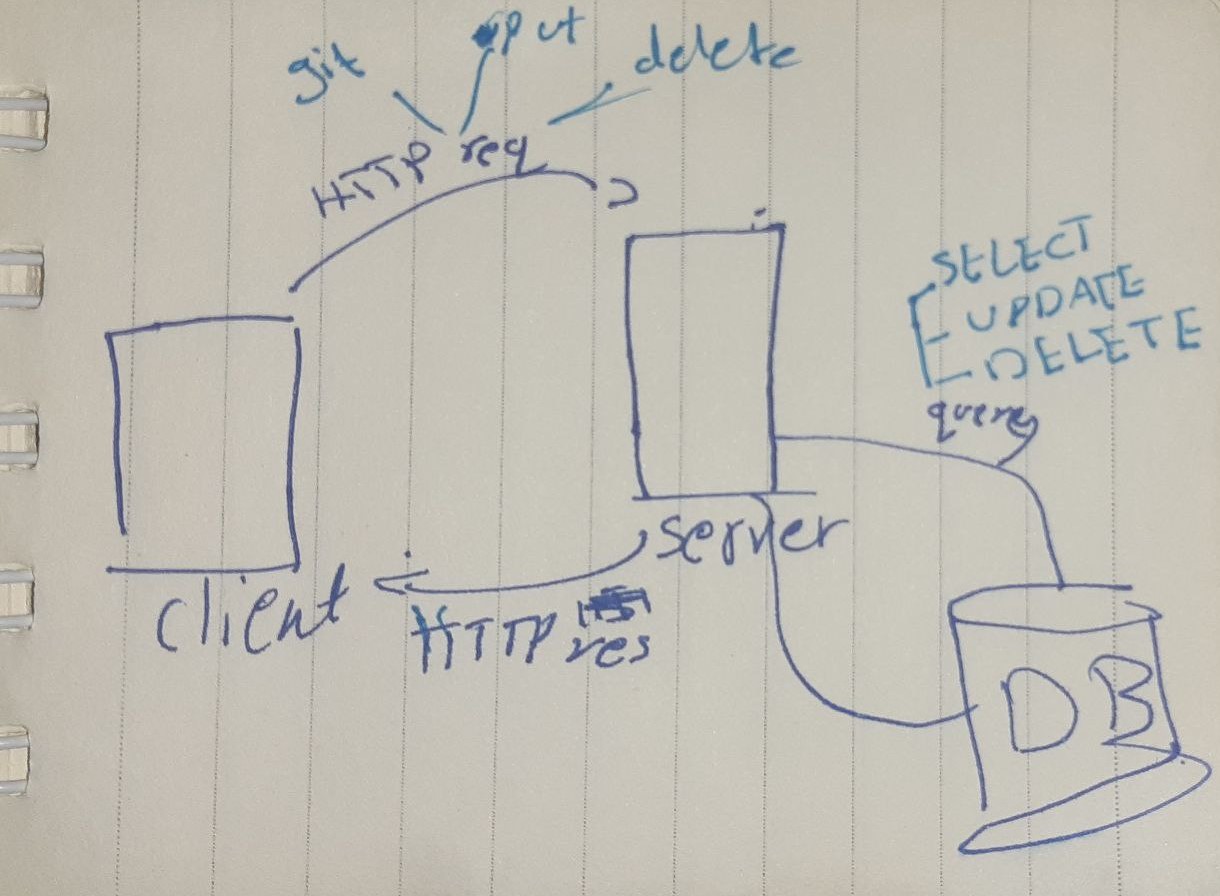 git
put
delete
HTTP req
SELECT
UPDATE
DELETE
query
server
client
HTTP res
DB